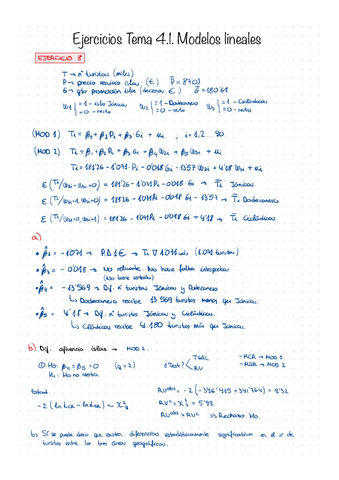 Ejercicios Tema 4.1. Modelos lineales
EJERCICIO 8
T → nº turistas (miles)
P → precio servicio islas (€) P̄ = 8703
G → gto promoción islas (decenas €) Ḡ = 180'61
W1i | = 1 - isla Jónicas = 0 - resto W2i | = 1 - Dodecaneso = 0 - resto W3i | = 1 - Cícladas = 0 - resto
(MOD 1) Ti = β1 + β2 Pi + β3 Gi + ui , i = 1,2... 90
(MOD 2) Ti = β1 + β2 Pi + β3 Gi + β4 W2i + β5 W3i + ui
Ti = 181'26 - 1'071 Pi - 0'018 Gi - 13'57 W2i + 4'18 W3i + ei
E (Ti/W2i=W3i=0) = 181'26 - 1'071 Pi - 0'018 Gi → T̄i Jónicas
E (Ti/W2i=1, W3i=0) = 181'26 - 1'071 Pi - 0'018 Gi - 13'57 → T̄i Dodecaneso
E (Ti/W2i=0, W3i=1) = 181'26 - 1'071 Pi - 0'018 Gi + 4'18 → T̄i Cícladas
a)
• β̂2 = -1'071 → P Δ 1€ → Ti ∇ 1'071 uds (1.071 turistas)
• β̂3 = -0'018 → No relevante. No hace falta interpretar
• β̂4 = -13'569 → Dif. nº turistas Jónicas y Dodecaneso
↳ Dodecaneso recibe 13.569 turistas menos que Jónicas.
• β̂5 = 4'18 → Dif. nº turistas Jónicas y Cícladas.
↳ Cícladas recibe 4.180 turistas más que Jónicas.
b) Dif. afluencia islas → MOD 2.
① H0: β4 = β5 = 0 (q = 2) ¿Test? TGRL RV - MCR → MOD 1
H1: H0 no cierta - MSR → MOD 2
Estad. RVobs = -2 (-346'415 + 341'764) = 9'32
-2 (ln LCR - ln LSR) ~ χ²q RVc = χ²2 = 5'99
RVobs > RVc → Rechazo H0.
b) Sí se puede decir que existen diferencias estadísticamente significativas en el nº de
turistas entre las tres áreas geográficas.